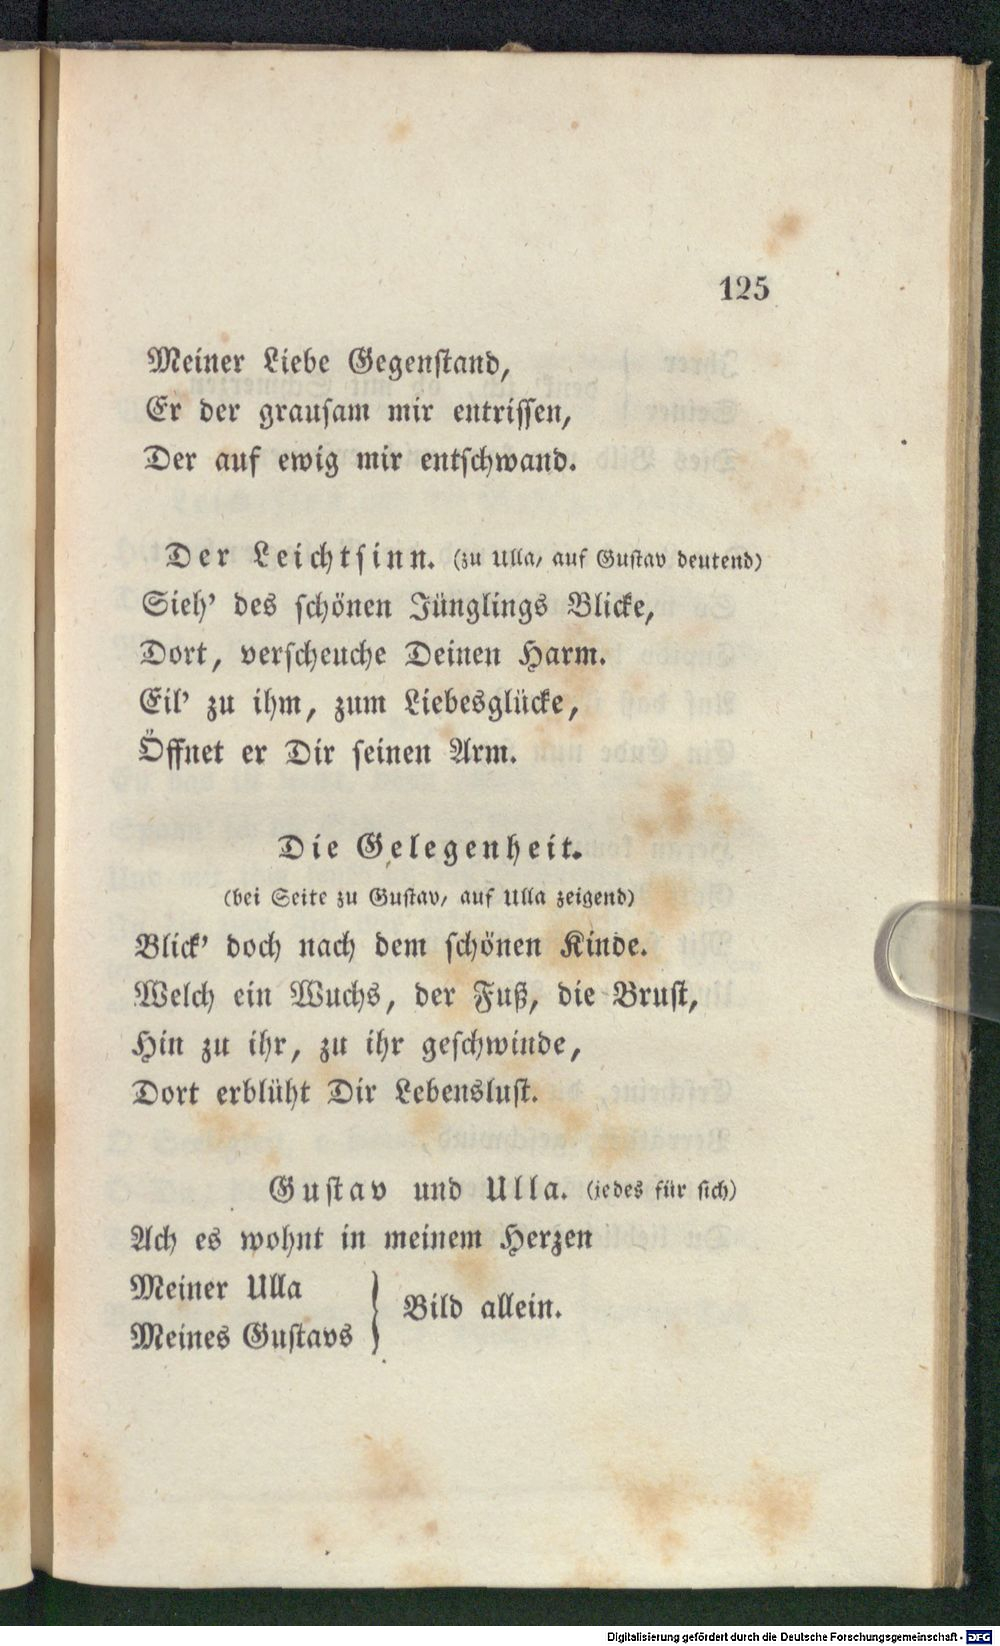 125
Meiner Liebe Gegenstand,
Er der grausam mir entrissen,
Der auf ewig mir entschwand.
Der Leichtsinn. (zu Ulla, auf Gustav deutend)
Sieh' des schönen Jünglings Blicke,
Dort, verscheuche Deinen Harm.
Eil' zu ihm, zum Liebesglücke,
Öffnet er Dir seinen Arm.
Die Gelegenheit.
(bei Seite zu Gustav, auf Ulla zeigend)
Blick' doch nach dem schönen Kinde.
Welch ein Wuchs, der Fuß, die Brust,
Hin zu ihr, zu ihr geschwinde,
Dort erblüht Dir Lebenslust.
Gustav und Ulla. (jedes für sich)
Ach es wohnt in meinem Herzen
Meiner Ulla
Meines Gustavs } Bild allein.
Digitalisierung gefördert durch die Deutsche Forschungsgemeinschaft - DFG